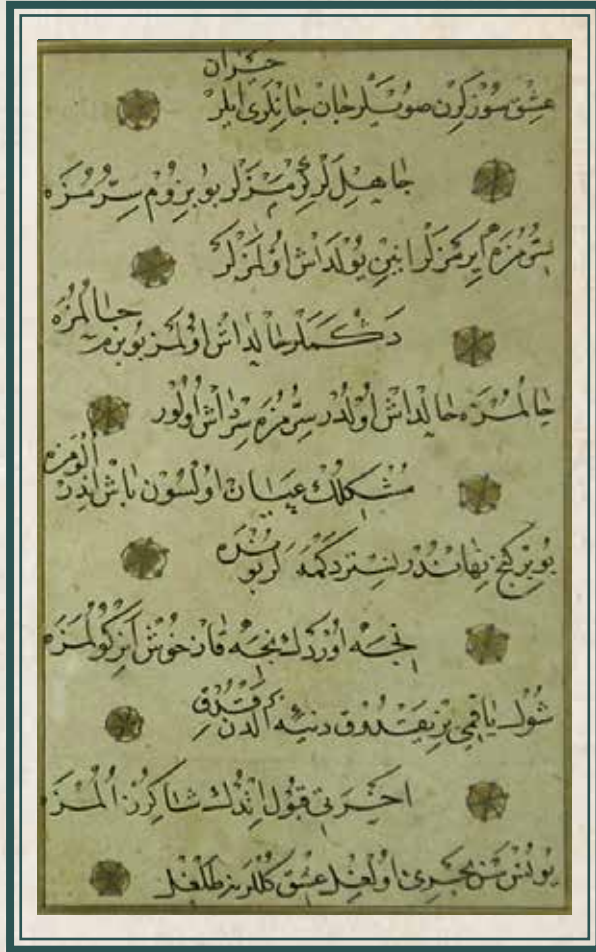 عشق سوزلرن سويلر جان جانلرى ايلر حيران
جاهل لر گرمزلر بو بزوم سرمزه
سرمزه ايرمزلر انين يولداش اولمزلر
دكمه لر حالداش اولمز بو بزم حالمزه
حالمزه حالداش اولدر سرمزه سرداش اولور
مشكلك عيان اولسون باش اندر الومزه
بو بر گنج نهاندر ايستر دكمه لر
نجه اوردك نجه قاز خوش انر گولمزه
شول ياقمى بز يقدوق دنيه الدن
اخرتى قبول اتدك شاكرز المزه
يونس سن بحرى اولغل عشق گللرينه طلغل